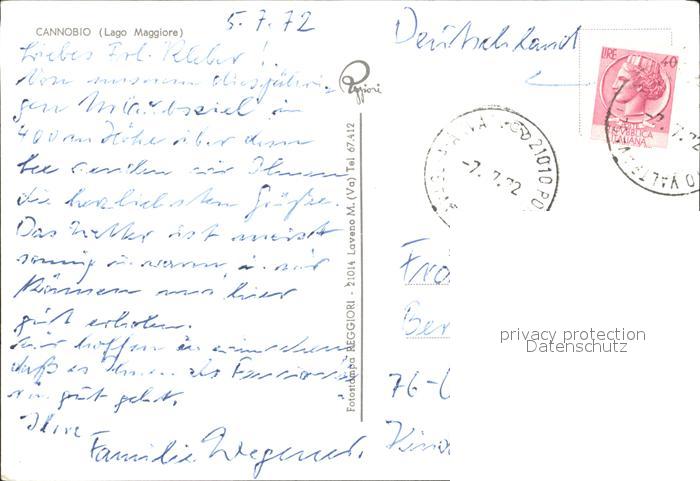 CANNOBIO (Lago Maggiore)
5.7.72
Liebes Frl. Kleber!
Von unserem diesjähri-
gen Urlaubsziel in
400 m Höhe über dem
See senden wir Ihnen
die herzlichsten Grüße.
Das Wetter ist meist
sonnig u. warm, u. wir
können uns hier
gut erholen.
Wir hoffen u. wünschen
daß es Ihnen als
gut geht.
Ihre
Familie Wegener
Reggiori
Fotostampa REGGIORI - 21014 Laveno M. (Va) Tel. 67.412
Deutschland
LIRE 40
POSTE
REPUBBLICA
ITALIANA
21010 PO
-7.7.72
7.72
VALT
Fr
Ber
76-
privacy protection
Datenschutz